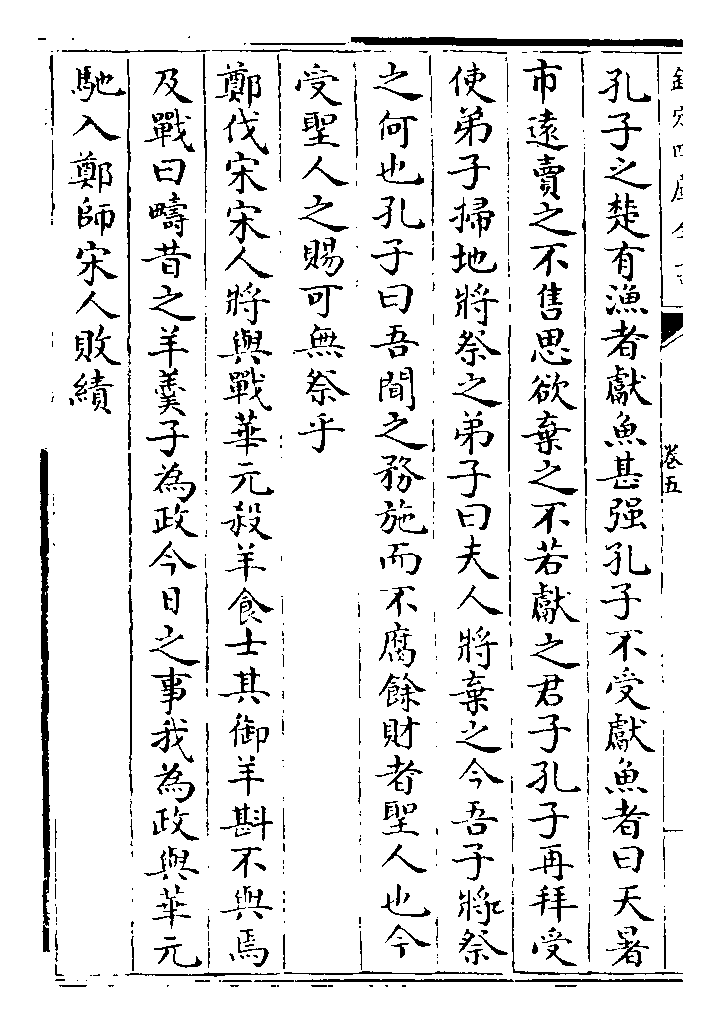 欽定四庫全書
卷五
孔子之楚有漁者獻魚甚强孔子不受獻魚者曰天暑
市遠賣之不售思欲棄之不若獻之君子孔子再拜受
使弟子掃地將祭之弟子曰夫人將棄之今吾子將祭
之何也孔子曰吾聞之務施而不腐餘財者聖人也今
受聖人之賜可無祭乎
鄭伐宋宋人將與戰華元殺羊食士其御羊斟不與焉
及戰曰疇昔之羊羹子為政今日之事我為政與華元
馳入鄭師宋人敗績